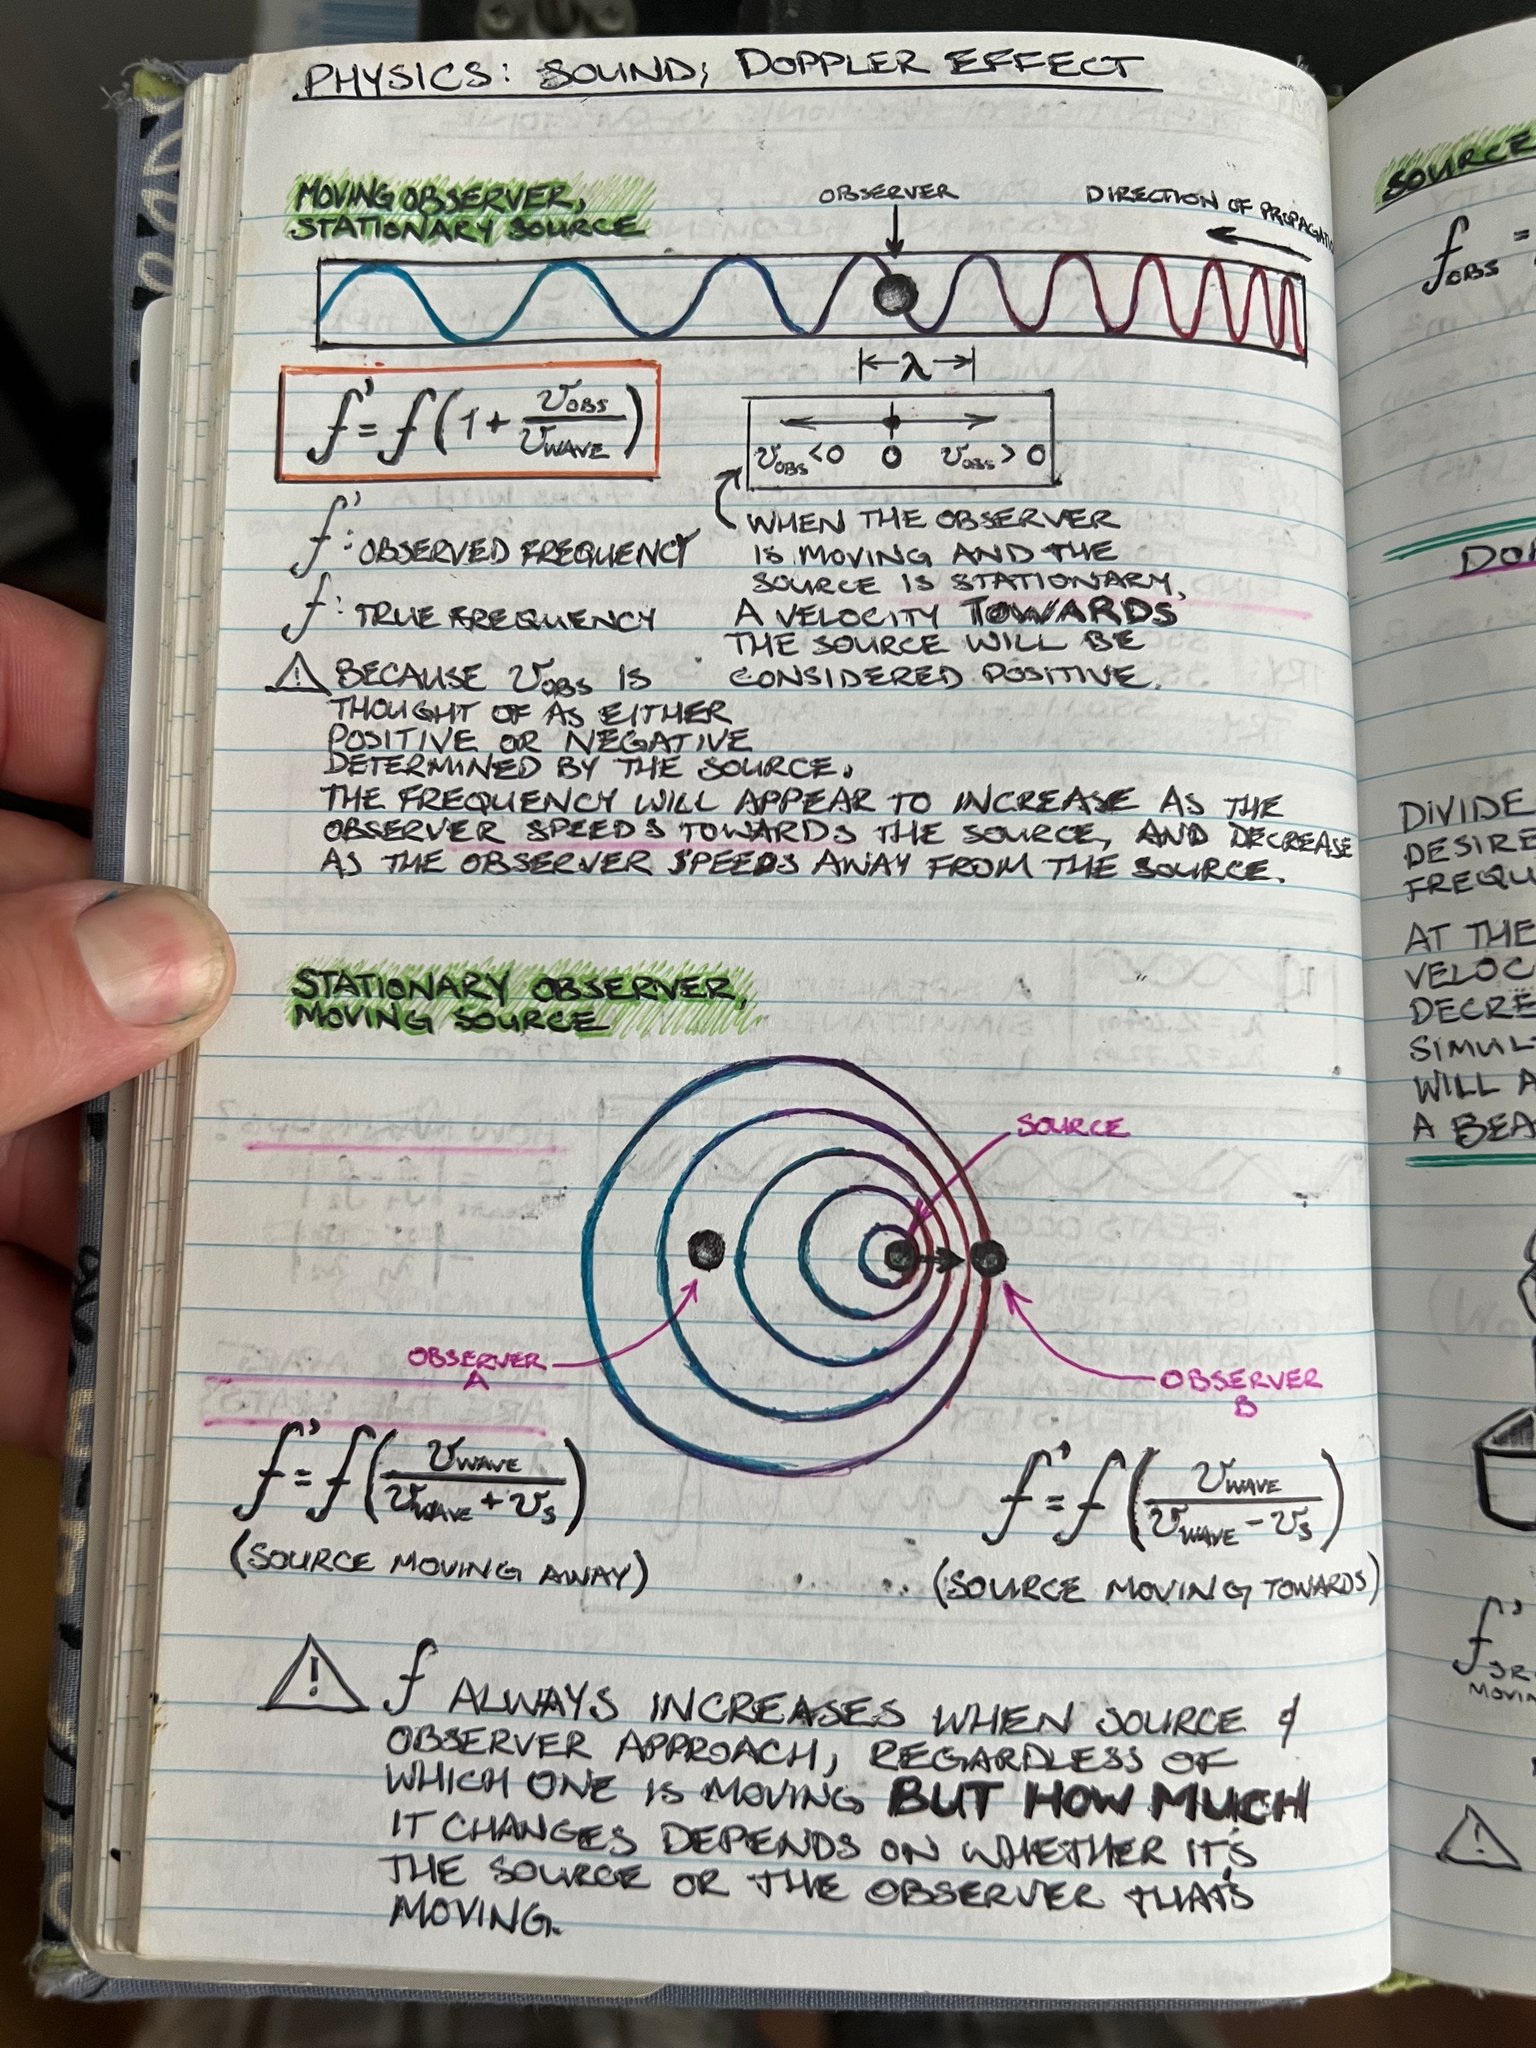 PHYSICS: SOUND; DOPPLER EFFECT
MOVING OBSERVER,
STATIONARY SOURCE
OBSERVER
DIRECTION OF PROPAGATION
λ
f' = f(1 + v_OBS / v_WAVE)
v_OBS < 0   0   v_OBS > 0
f': OBSERVED FREQUENCY
f: TRUE FREQUENCY
WHEN THE OBSERVER
IS MOVING AND THE
SOURCE IS STATIONARY,
A VELOCITY TOWARDS
THE SOURCE WILL BE
CONSIDERED POSITIVE.
⚠ BECAUSE v_OBS IS
THOUGHT OF AS EITHER
POSITIVE OR NEGATIVE
DETERMINED BY THE SOURCE.
THE FREQUENCY WILL APPEAR TO INCREASE AS THE
OBSERVER SPEEDS TOWARDS THE SOURCE, AND DECREASE
AS THE OBSERVER SPEEDS AWAY FROM THE SOURCE.
STATIONARY OBSERVER,
MOVING SOURCE
SOURCE
OBSERVER
A
OBSERVER
B
f' = f(v_WAVE / (v_WAVE + v_S))
(SOURCE MOVING AWAY)
f' = f(v_WAVE / (v_WAVE - v_S))
(SOURCE MOVING TOWARDS)
⚠ f ALWAYS INCREASES WHEN SOURCE &
OBSERVER APPROACH, REGARDLESS OF
WHICH ONE IS MOVING BUT HOW MUCH
IT CHANGES DEPENDS ON WHETHER IT'S
THE SOURCE OR THE OBSERVER THAT'S
MOVING.
SOURCE
f_OBS =
DIVIDE
DESIRE
FREQU
AT THE
VELOC
DECRE
SIMUL
WILL A
A BEA
MOVIN